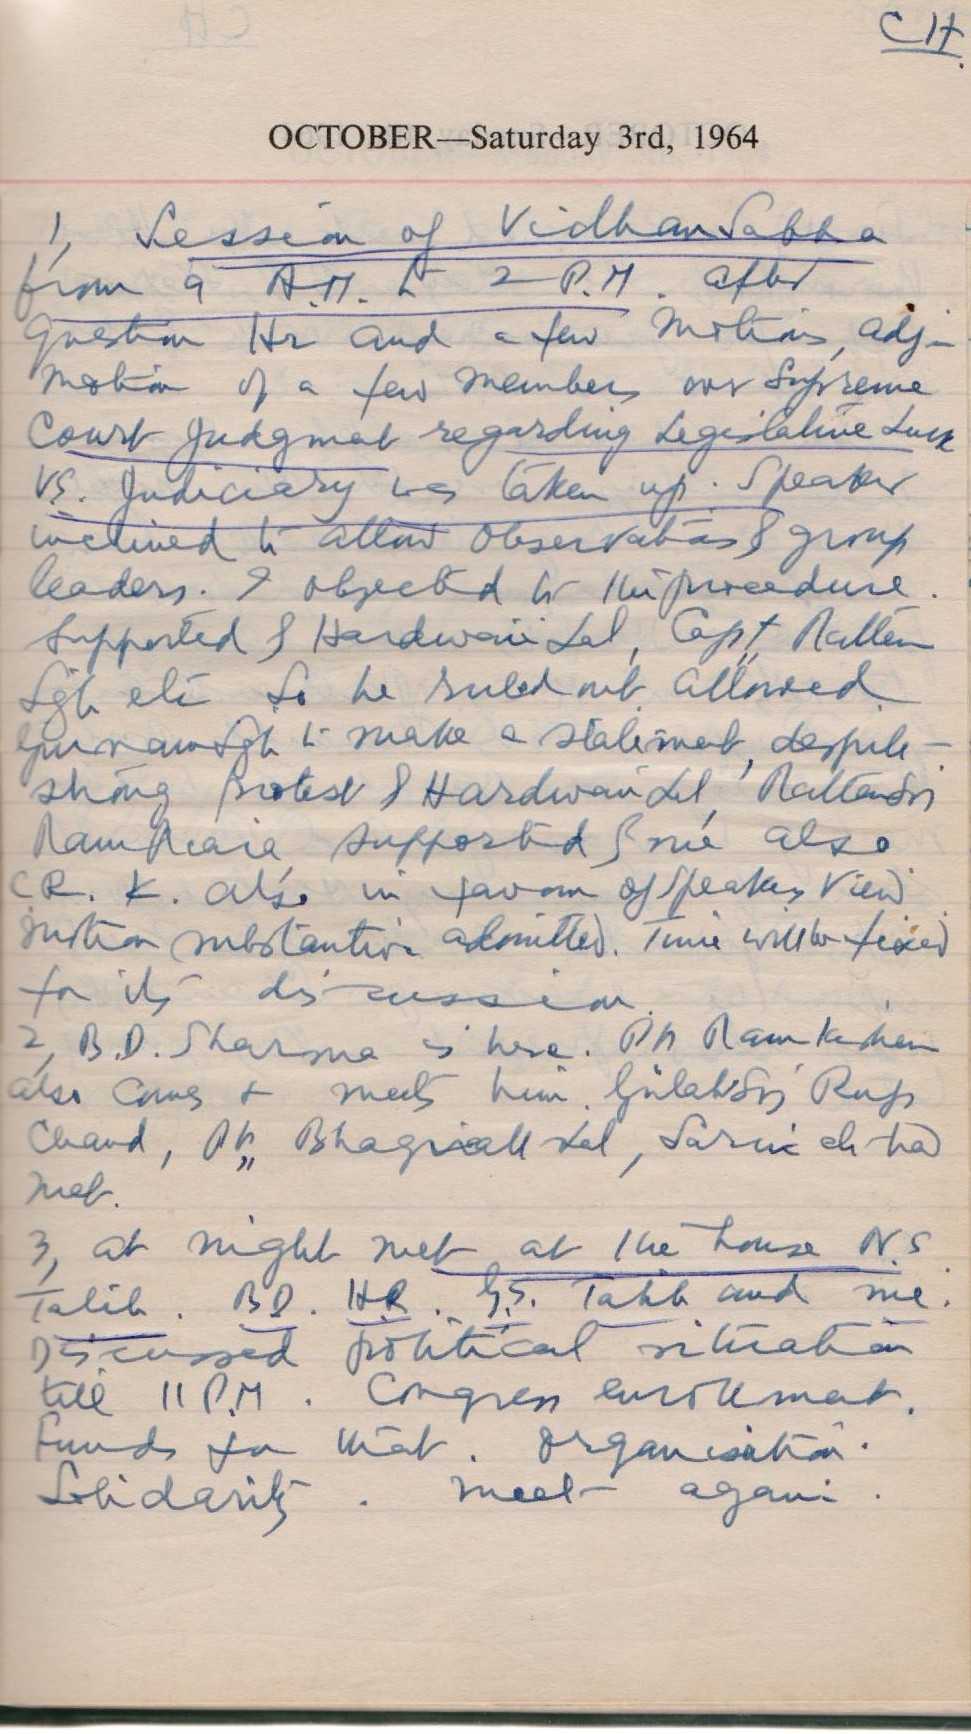 CH.
OCTOBER—Saturday 3rd, 1964
1, Session of Vidhan Sabha
from 9 A.M. to 2 P.M. after
question Hr and a few motions, adj-
motion of a few members over Supreme
Court Judgmat regarding Legislative
vs. Judiciary was taken up. Speaker
inclined to allow observations & group
leaders. I objected to the procedure.
Supported & Hardwari Lal, Capt Rattan
Sgh etc So he ruled out. allowed
Gurnam Sgh to make a statement, despite
strong protest & Hardwari Lal, Rattan
Ram supported & me also
C.R. K. also in favour of Speakers View
motion substantive admitted. Time will be fixed
for its discussion.
2, B.D. Sharma is here. Pt Ram Kishan
also comes & meets him. Rup
Chand, Pt, Lal, etc had
met.
3, at night met at the house N.S
Talib. BD. HR. G.S. Talib and me.
Discussed political situation
till 11 P.M. Congress enrollment.
Funds for that. Organisation.
Solidarity. meet again.